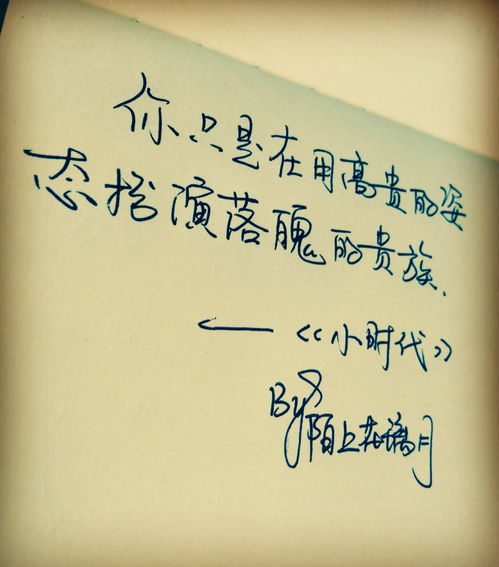 你只是在用高贵的姿
态扮演落魄的贵族.
——《小时代》
By 陌上花漓月